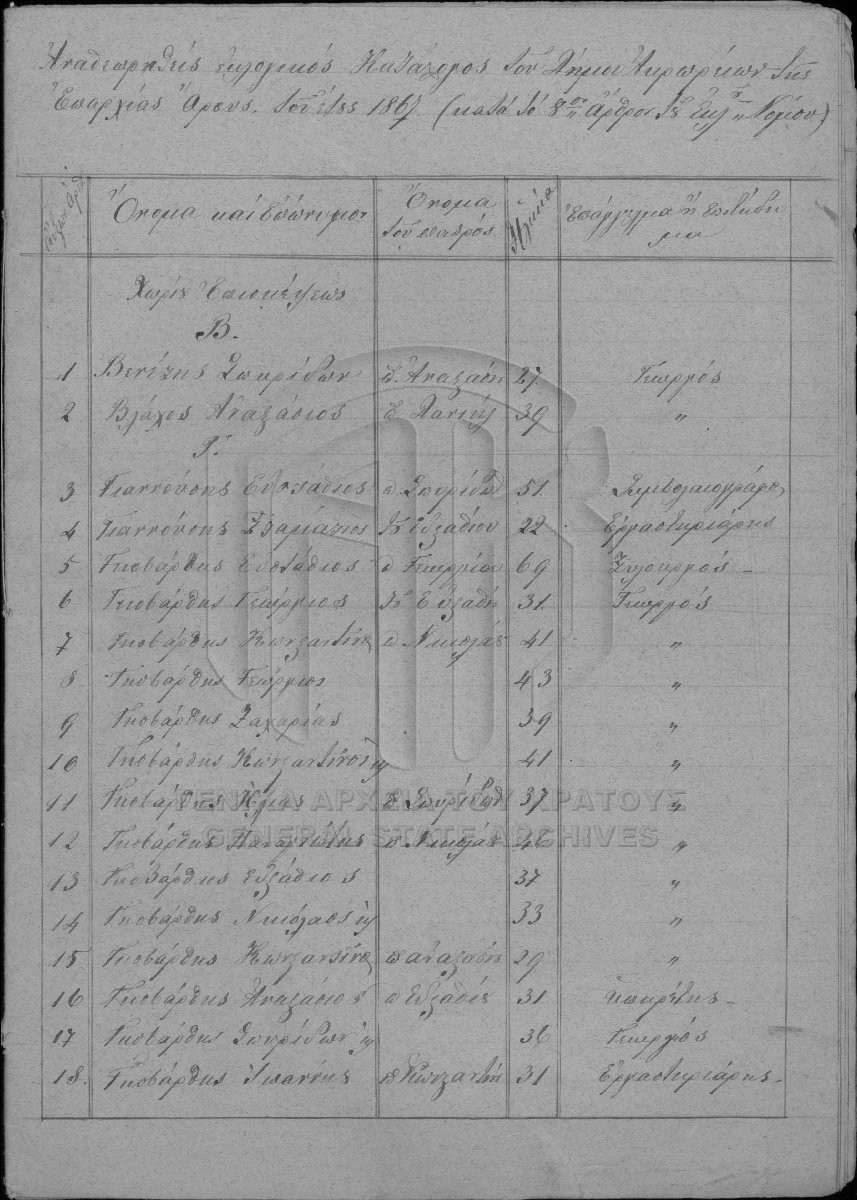 Ἀναθεωρηθεὶς ἐκλογικὸς Κατάλογος τοῦ Δήμου Ἀκρωρείων τῆς
Ἐπαρχίας Ὄρους, τοῦ ἔτους 1867 (κατὰ τὸ 8ον ἄρθρον τοῦ Ἐκλ. Νόμου)
Ὄνομα καὶ Ἐπώνυμον
Ὄνομα τοῦ πατρός
Ἡλικία
Ἐπάγγελμα ἢ Ἐπιτήδευμα
Χωρίον Ἐπισκέψεως
Β.
1 Βενέζης Σπυρίδων π. Ἀναστάση 27 Γεωργός
2 Βλάχος Ἀναστάσιος π. Δανιήλ 39 〃
Γ.
3 Γιαννούσης Εὐστάθιος π Σπυρίδων 51 Συμβολαιογράφος
4 Γιαννούσης Σταμάτιος π Εὐσταθίου 22 Ἐργαστηριάρης
5 Γκοβάρθης Εὐστάθιος π Γεωργίου 69 Ξυλουργός
6 Γκοβάρθης Γεώργιος π Εὐστάθη 31 Γεωργός
7 Γκοβάρθης Κωνσταντῖνος π Νικολάου 41 〃
8 Γκοβάρθης Γεώργιος 43 〃
9 Γκοβάρθης Ζαχαρίας 39 〃
10 Γκοβάρθης Κωνσταντῖνος 41 〃
11 Γκοβάρθης Ἠλίας π Σπυρίδων 37 〃
12 Γκοβάρθης Παναγιώτης π Νικολάου 46 〃
13 Γκοβάρθης Εὐστάθιος 37 〃
14 Γκοβάρθης Νικόλαος 33 〃
15 Γκοβάρθης Κωνσταντῖνος π Ἀναστάση 29 〃
16 Γκοβάρθης Ἀναστάσιος π Εὐστάθιου 31 ὑπηρέτης
17 Γκοβάρθης Σπυρίδων 36 Γεωργός
18. Γκοβάρθης Ἰωάννης π Κωνσταντῆ 31 Ἐργαστηριάρης
ΓΕΝΙΚΑ ΑΡΧΕΙΑ ΤΟΥ ΚΡΑΤΟΥΣ
GENERAL STATE ARCHIVES